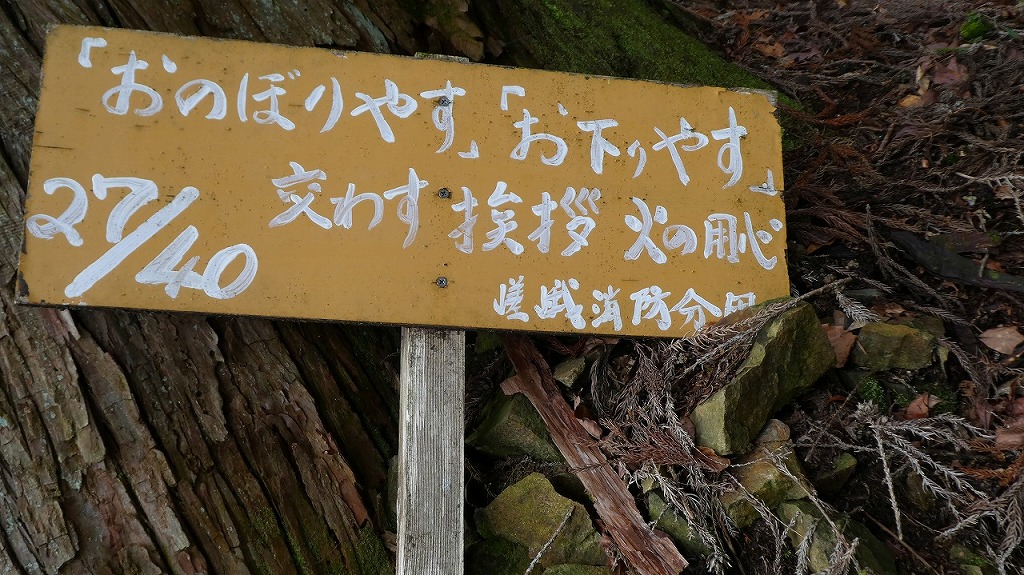 「おのぼりやす」「お下りやす」
27/40
交わす挨拶 火の用心
嵯峨消防分団